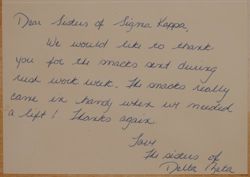 Dear Sisters of Sigma Kappa,
We would like to thank
you for the snacks sent during
rush work week. The snacks really
came in handy when we needed
a lift! Thanks again
Love
The sisters of
Delta Zeta